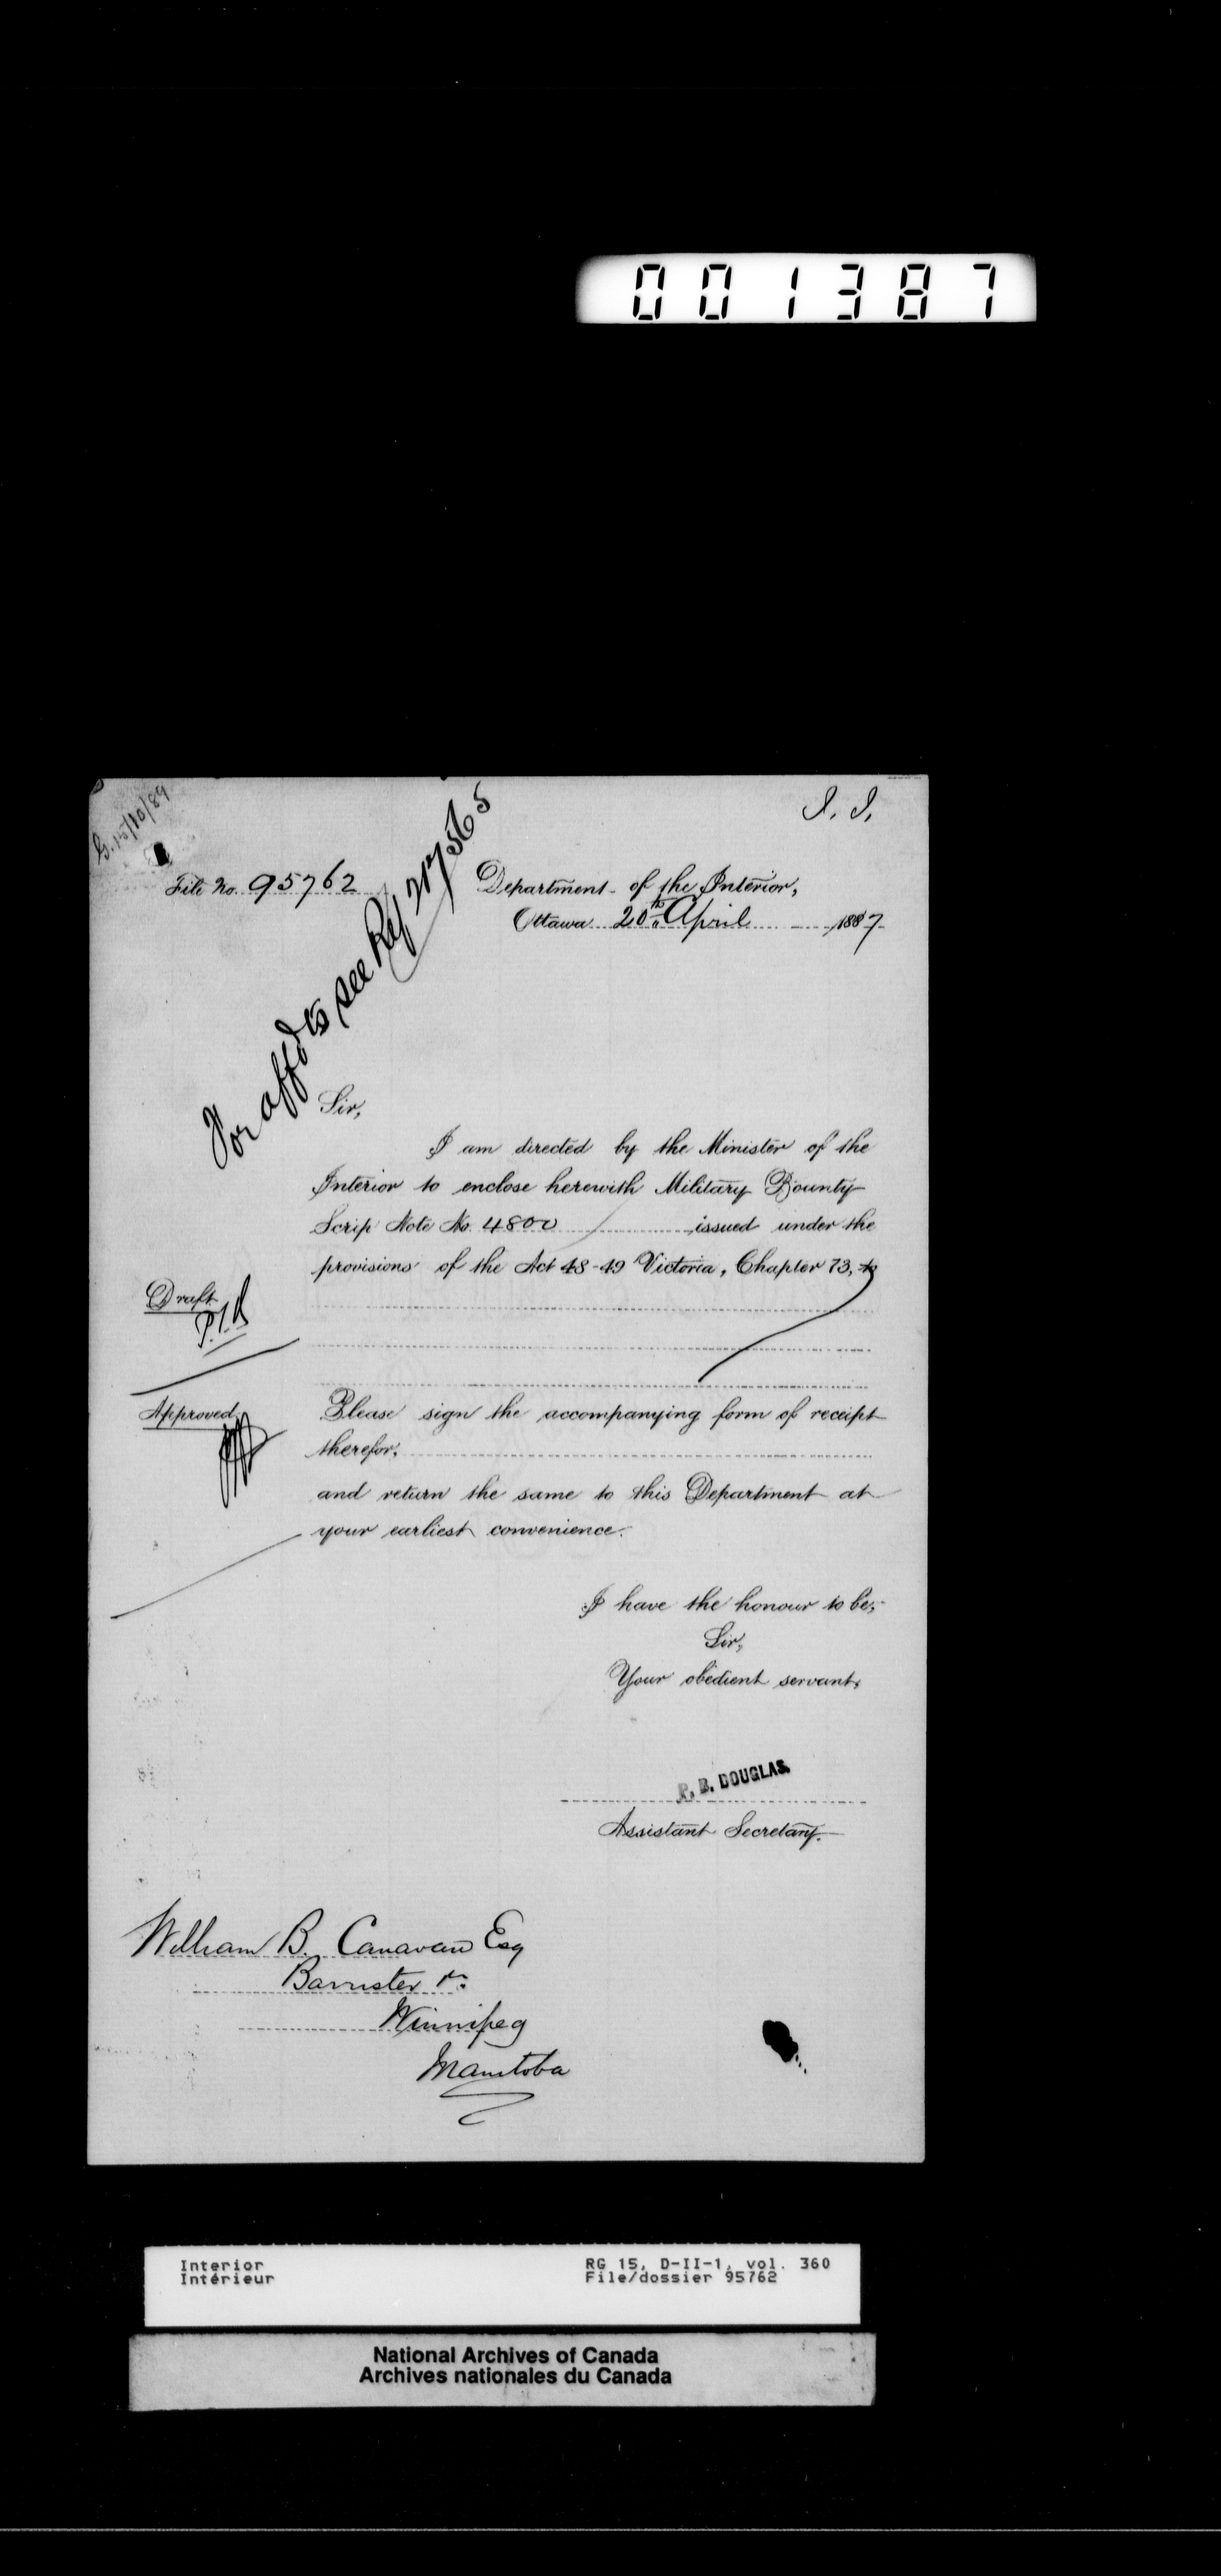 001387
G. 15/10/89
I. I.
File No. 95762
Department of the Interior,
Ottawa 20th April 1887
For affdts see Ref 217565
Sir,
I am directed by the Minister of the
Interior to enclose herewith Military Bounty
Scrip Note No. 4800 issued under the
provisions of the Act 48-49 Victoria, Chapter 73, to
Draft
Approved
Please sign the accompanying form of receipt
therefor,
and return the same to this Department at
your earliest convenience.
I have the honour to be,
Sir,
Your obedient servant,
P. B. DOUGLAS.
Assistant Secretary.
William B. Canavan Esq
Barrister &c
Winnipeg
Manitoba
Interior
Intérieur
RG 15, D-II-1, vol. 360
File/dossier 95762
National Archives of Canada
Archives nationales du Canada